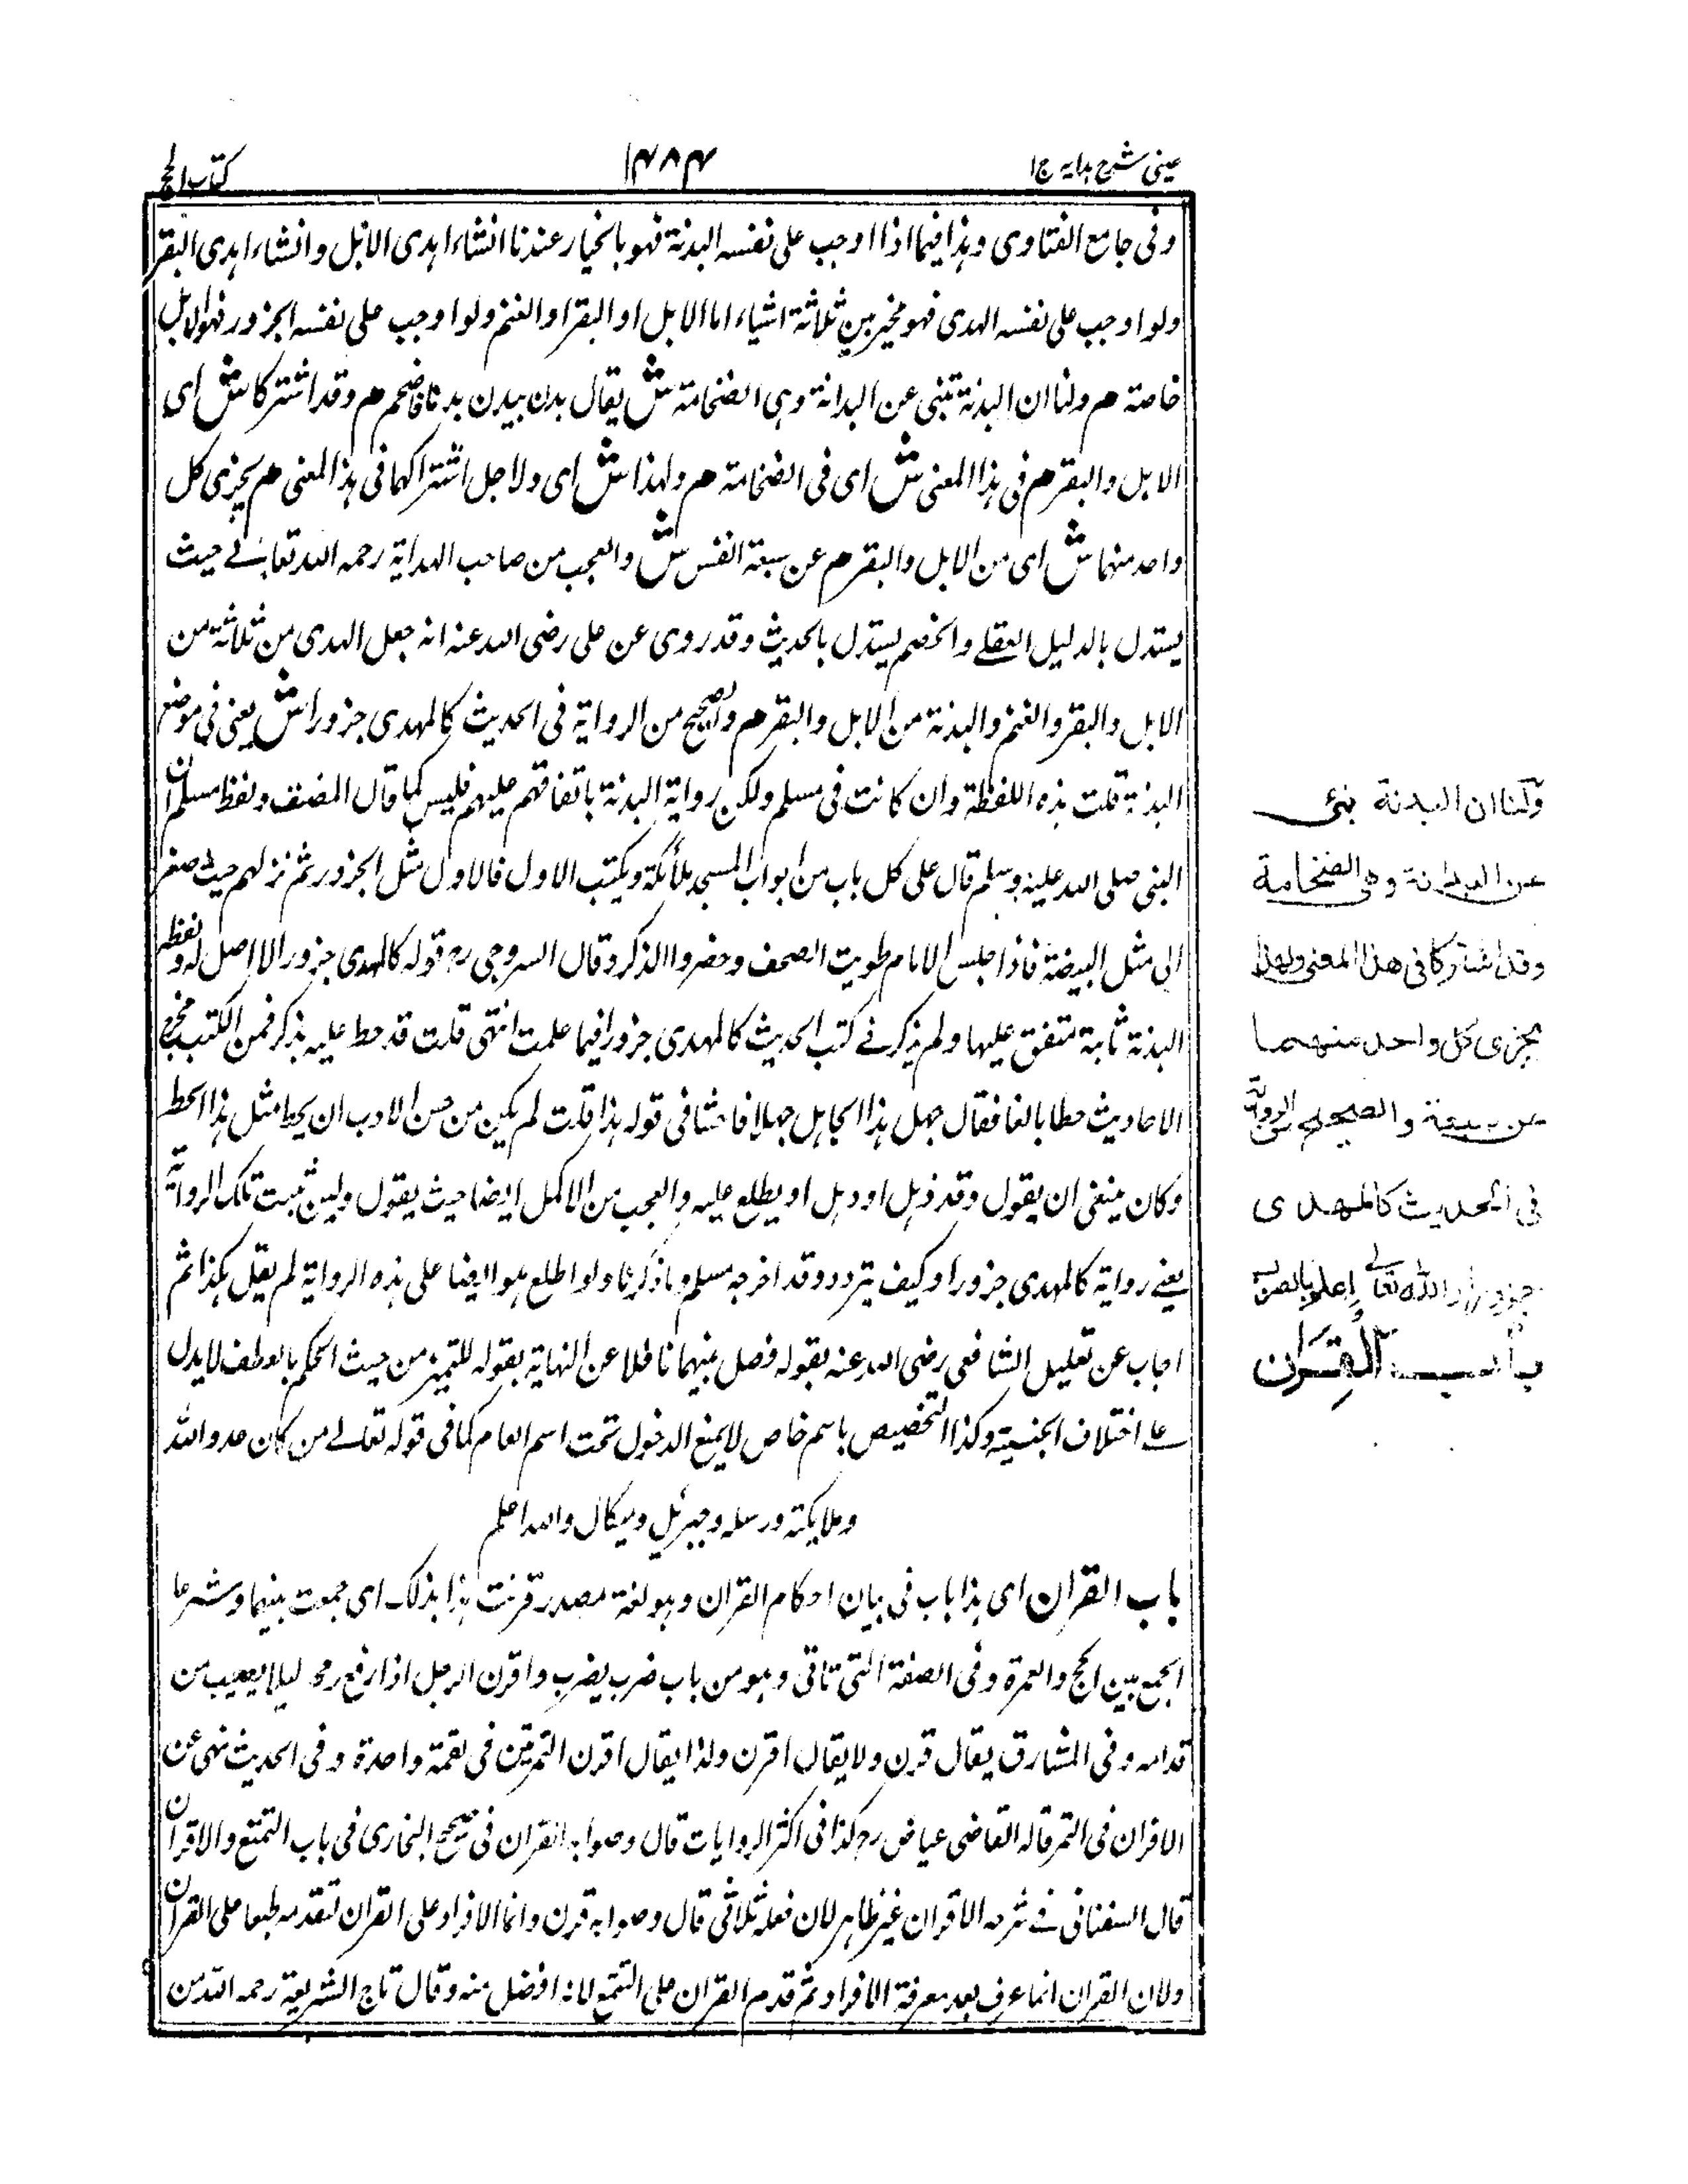 عینی شرح ہدایہ ج ۱
۱۴۸۴
کتاب الحج
وفی جامع الفتاوی وہذا فیما اذا اوجب علی نفسہ البدنۃ فہو بالخیار عندنا انشاء اہدی الابل وانشاء اہدی البقر
ولو اوجب علی نفسہ الہدی فہو مخیر بین ثلاثۃ اشیاء اما الابل او البقر او الغنم ولو اوجب علی نفسہ الجزور فہو الابل
خاصۃ م ولنا ان البدنۃ تنبی عن البدانۃ وہی الضخامۃ ش یقال بدن یبدن بدنا فاضخم م وقد اشترکا ش ای
الابل والبقر م فی ہذا المعنی ش ای فی الضخامۃ م ولہذا ش ای ولاجل اشتراکہما فی ہذا المعنی م یجزی کل
واحد منہما ش ای من الابل والبقر م عن سبعۃ انفس ش والعجب من صاحب الہدایۃ رحمہ اللہ تعالے حیث
یستدل بالدلیل العقلے والخصم یستدل بالحدیث وقد روی عن علی رضی اللہ عنہ انہ جعل الہدی من ثلاثۃ من
الابل والبقر والغنم والبدنۃ من الابل والبقر م والصحیح من الروایۃ فی الحدیث کالمہدی جزورا ش یعنی فی موضع
البدنۃ قلت ہذہ اللفظۃ وان کانت فی مسلم ولکن روایۃ البدنۃ باتفاقہم علیہم فلیس کما قال المصنف ولفظ مسلم ان
النبی صلی اللہ علیہ وسلم قال علی کل باب من ابواب المسجد ملائکۃ ویکتب الاول فالاول مثل الجزور ثم نزلہم حیث صغر
الی مثل البیضۃ فاذا جلس الامام طویت الصحف وحضروا الذکر وقال السروجی رح قولہ کالمہدی جزورا لا اصل لہ ولفظ
البدنۃ ثابتۃ متفق علیہا ولم یذکر فے کتب الحدیث کالمہدی جزورا فیما علمت انتہی قلت قد حط علیہ بذکر فمن الکتب مخرج
الاحادیث حطا بالغا فقال جہل ہذا الجاہل جہلا فاحشا فی قولہ ہذا قلت لم یکن من حسن الادب ان یحط مثل ہذا الحط
وکان ینبغی ان یقول وقد ذہل او وہل او یطلع علیہ والعجب من الاکمل ایضا حیث یقول ولئن ثبت تلک الروایۃ
یعنے روایۃ کالمہدی جزورا وکیف یتردد وقد اخرجہ مسلم وما ذکرنا ولو اطلع ہو ایضا علی ہذہ الروایۃ لم یقل ہکذا ثم
اجاب عن تعلیل الشافعی رضی اللہ عنہ بقولہ فصل بینہما ناقلا عن النہایۃ بقولہ للتمیز من حیث الحکم بالعطف لا یدل
علے اختلاف الجنسیۃ وکذا التخصیص باسم خاص لا یمنع الدخول تحت اسم العام کما فی قولہ تعالے من کان عدوا للہ
وملائکتہ ورسلہ وجبرئیل ومیکال واللہ اعلم
باب القران ای ہذا باب فی بیان احکام القران وہو لغۃ مصدر قرنت ہذا بذلک ای جمعت بینہما وشرعا
الجمع بین الحج والعمرۃ وفی الصفۃ التی تاتی وہو من باب ضرب یضرب واقرن الرجل اذا رفع رمحہ لیلا یصیب من
قدامہ وفی المشارق یقال قرن ولا یقال اقرن ولذا یقال اقرن التمرتین فی لقمۃ واحدۃ وفی الحدیث نہی عن
الاقران فی التمر قالہ القاضی عیاض رح کذا فی اکثر الروایات قال وصوابہ القران فی صحیح البخاری فی باب التمتع والاقران
قال السغناقی فے شرحہ الاقران غیر ظاہر لان فعلہ ثلاثی قال وصوابہ قرن وانما الافراد علی القران لتقدمہ طبعا علی القران
ولان القران انما عرف بعد معرفۃ الافراد ثم قدم القران علی التمتع لانہ افضل منہ وقال تاج الشریعۃ رحمہ اللہ من
ولنا ان البدنة تنبئ
عن البدانة وهي الضخامة
وقد اشتركا في هذا المعنى ولهذا
يجزى كل واحد منهما
عن سبعة والصحيح من الرواية
في الحديث كالمهدى
جزورا والله تعالى اعلم بالصواب
باب القِرَان